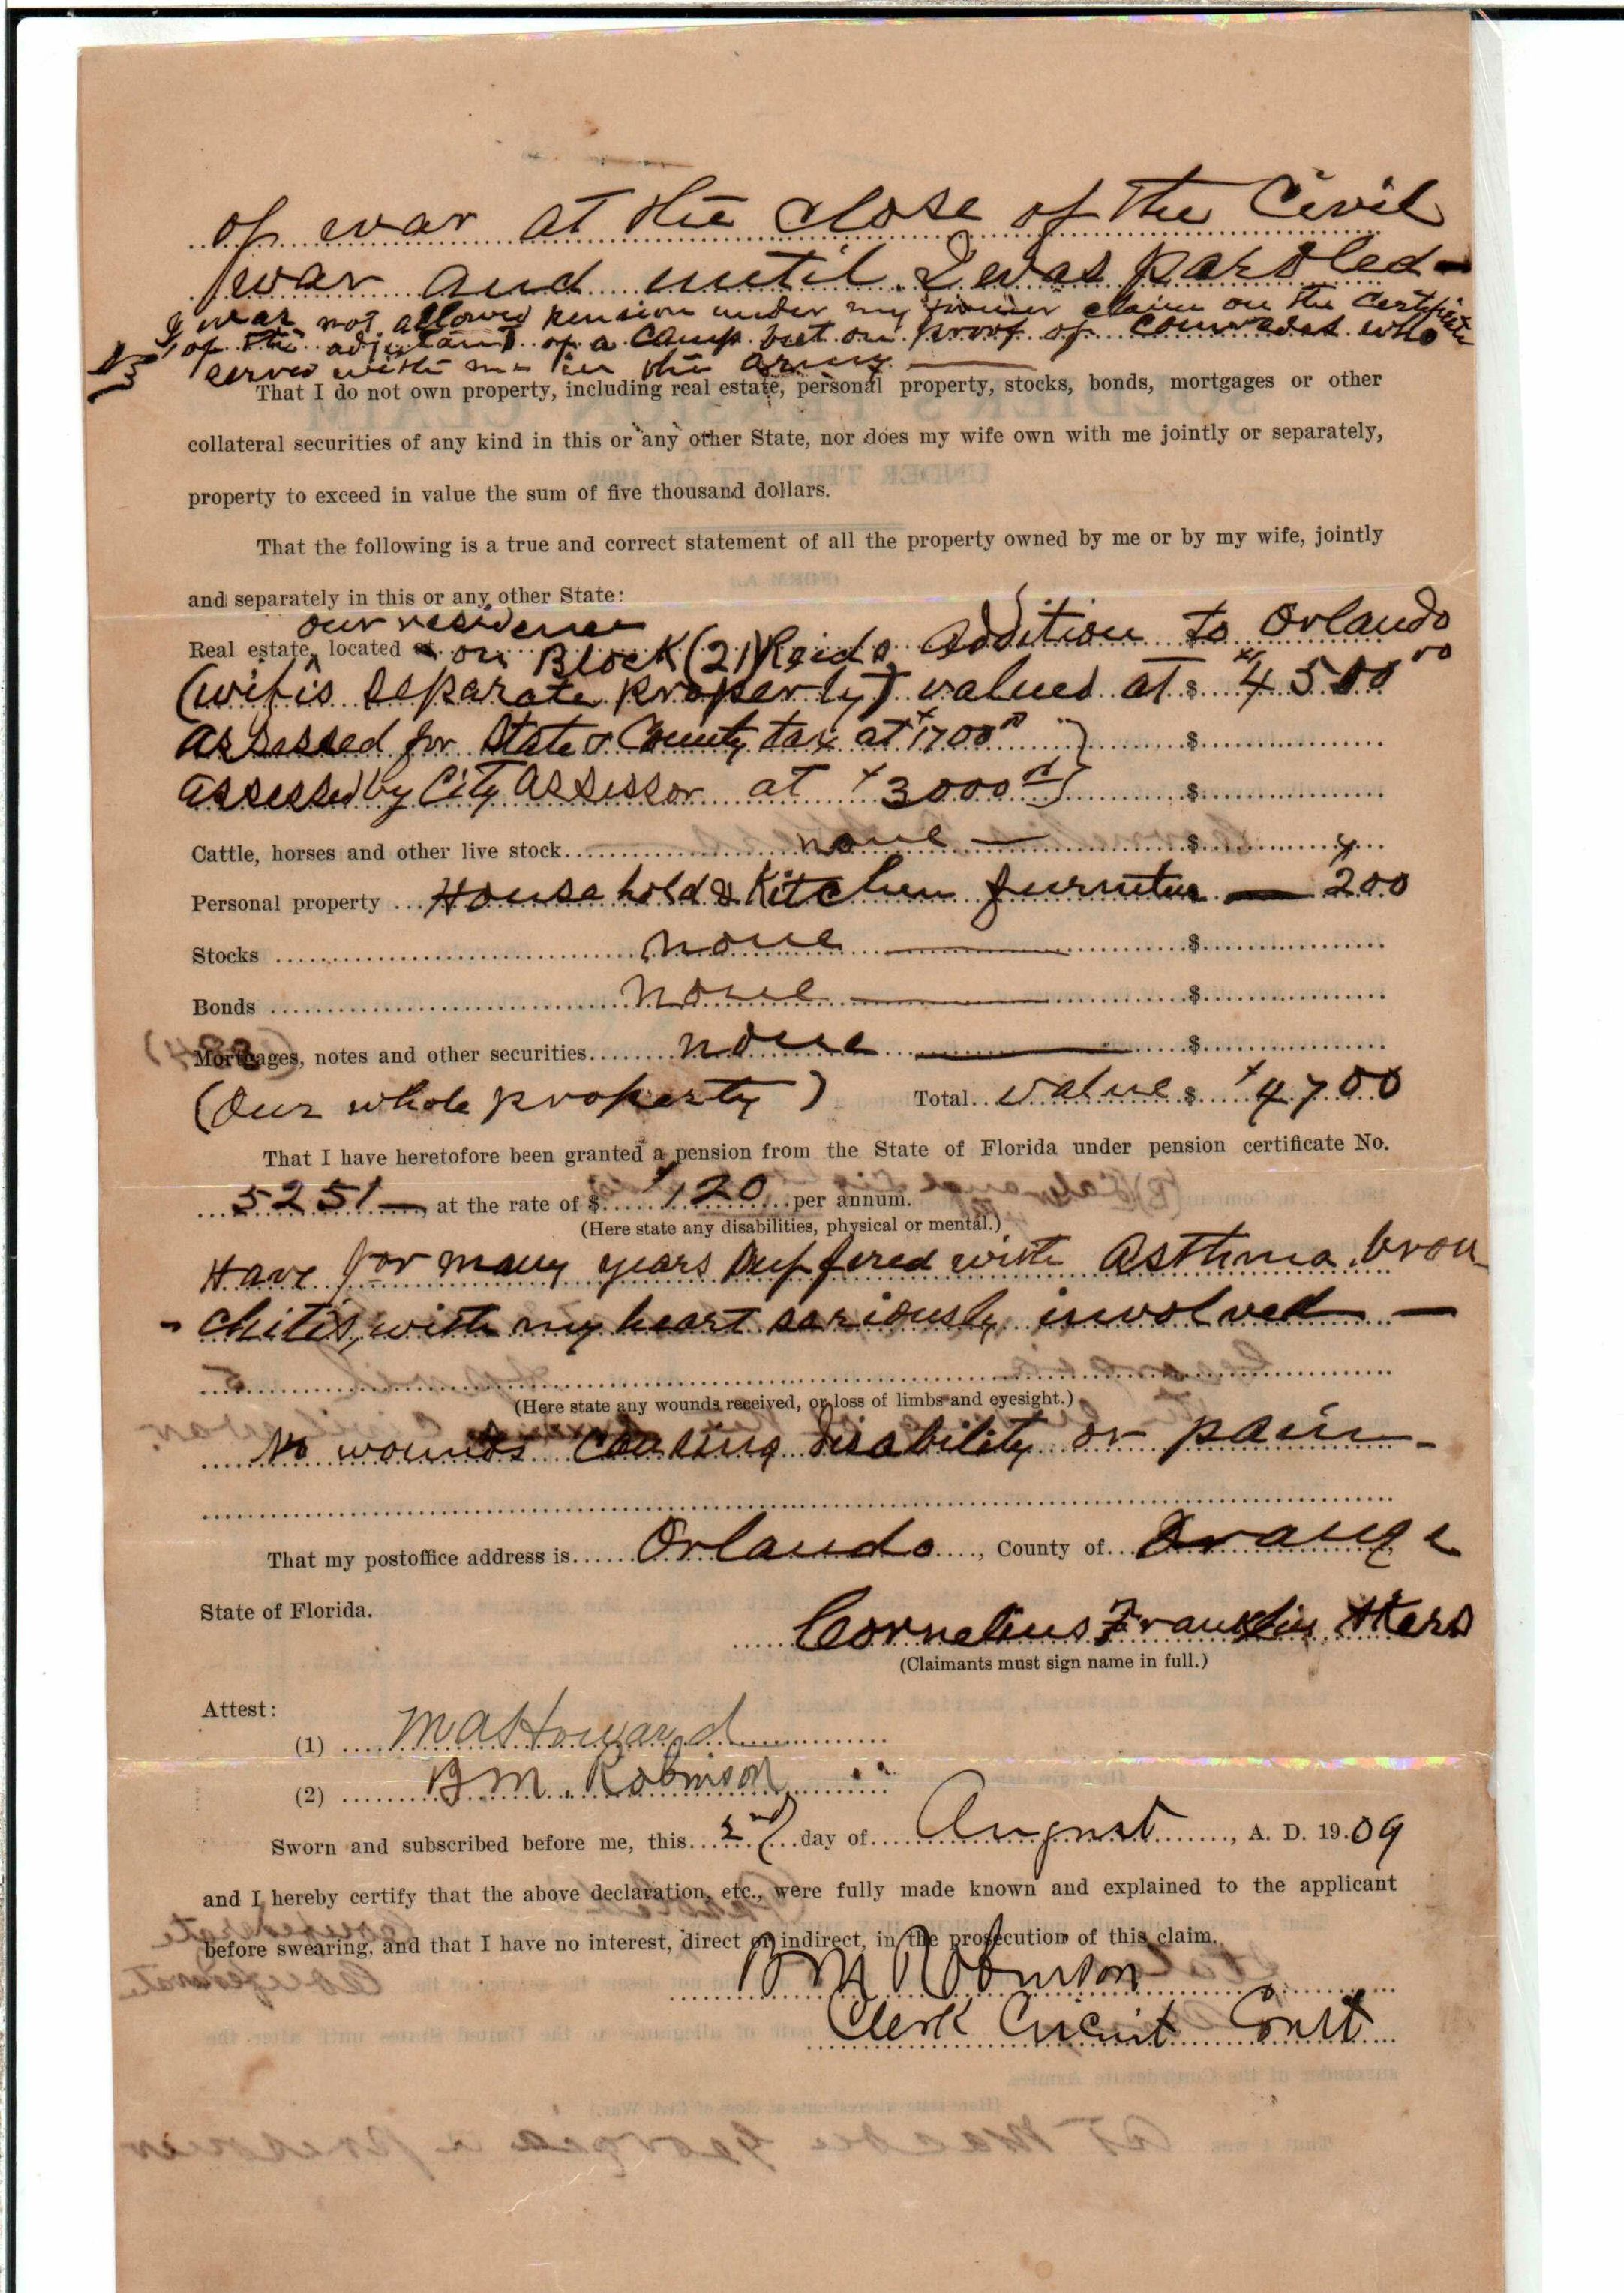 of war at the close of the Civil
war and until I was paroled —
I was not allowed pension under my former claim on the certificate
of the adjutant of a Camp but on proof of comrades who
served with me in the army. —
That I do not own property, including real estate, personal property, stocks, bonds, mortgages or other
collateral securities of any kind in this or any other State, nor does my wife own with me jointly or separately,
property to exceed in value the sum of five thousand dollars.
That the following is a true and correct statement of all the property owned by me or by my wife, jointly
and separately in this or any other State:
our residence
Real estate, located on Block (21) Reids Addition to Orlando
(wifis separate property) valued at $ 4500 00
Assessed for State & County tax at $1700 00 $
Assessed by City Assessor at $3000 $
Cattle, horses and other live stock none — $
Personal property Household & Kitchen furniture — 200
Stocks none — $
Bonds none — $
Mortgages, notes and other securities none — $
(Our whole property) Total value $ $4700
That I have heretofore been granted a pension from the State of Florida under pension certificate No.
5251 —, at the rate of $ 120 per annum.
(Here state any disabilities, physical or mental.)
Have for many years suffered with Asthma, bron-
-chitis, with my heart seriously involved —
(Here state any wounds received, or loss of limbs and eyesight.)
No wounds causing disability or pain -
That my postoffice address is Orlando, County of Orange
State of Florida.
Cornelius Franklin Akers
(Claimants must sign name in full.)
Attest:
(1) M A Howard
(2) B M. Robinson
Sworn and subscribed before me, this 2nd day of August, A. D. 1909
and I hereby certify that the above declaration, etc., were fully made known and explained to the applicant
before swearing, and that I have no interest, direct or indirect, in the prosecution of this claim.
B M Robinson
Clerk Circuit Court